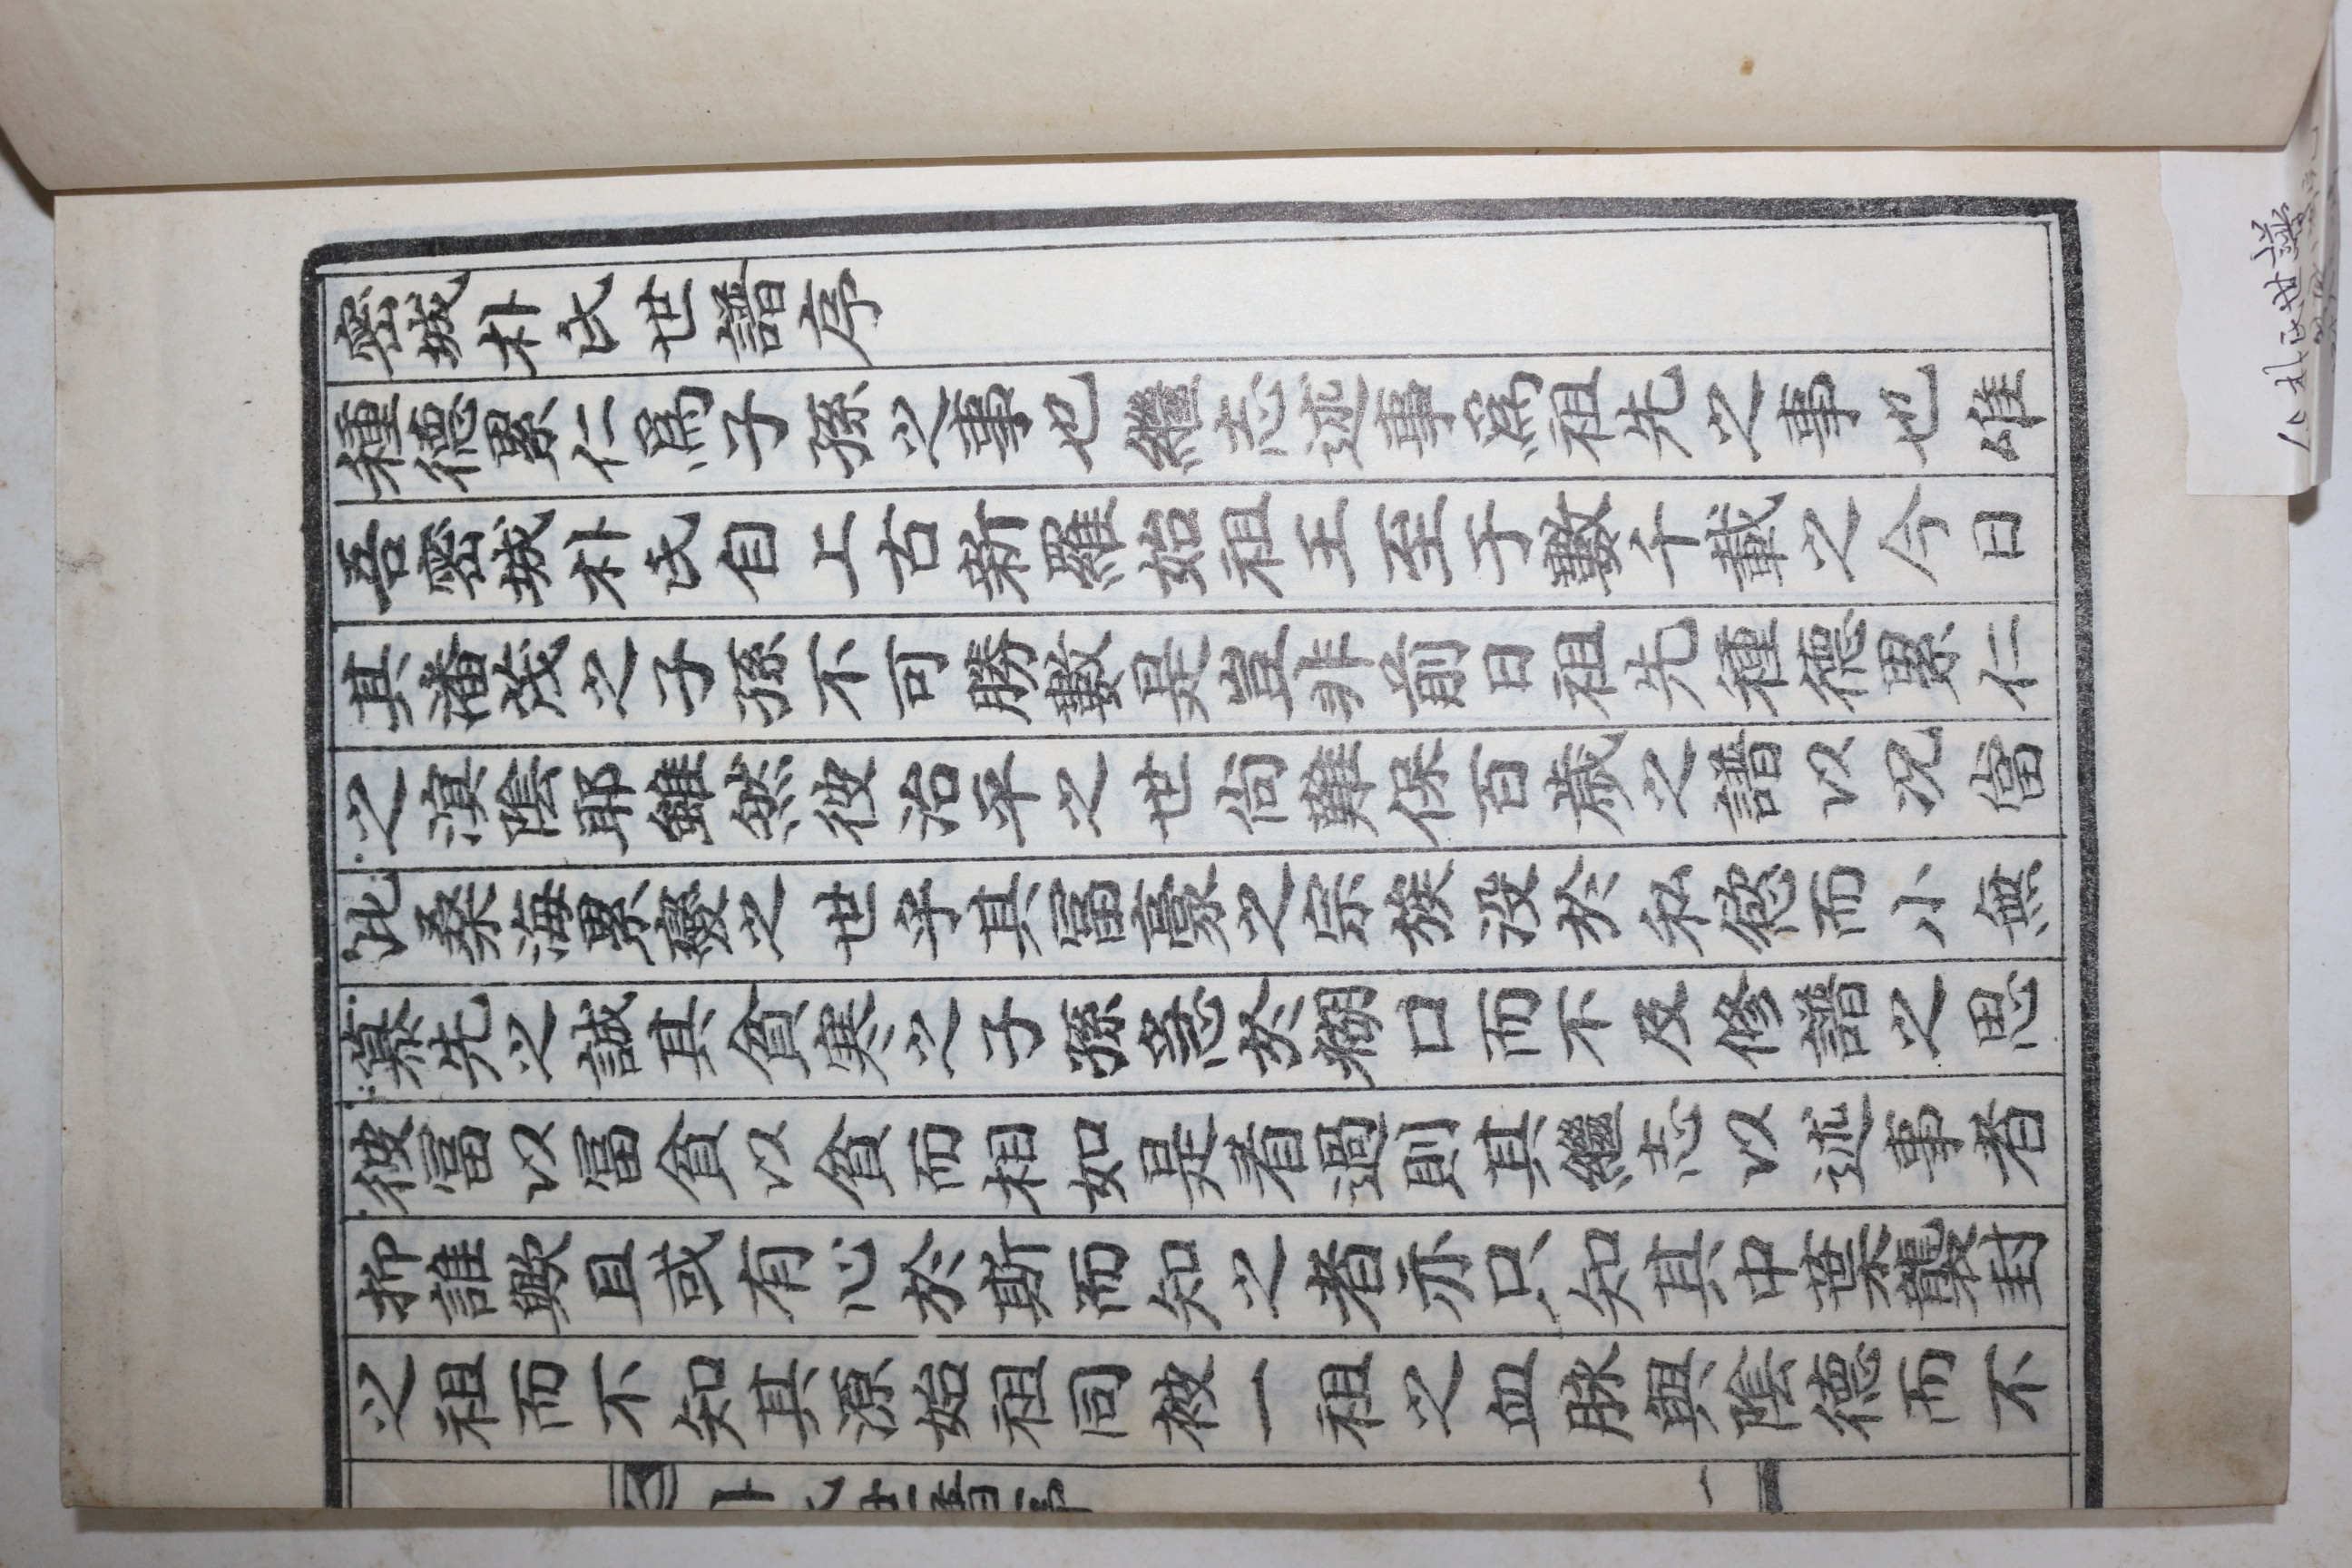 密城朴氏世譜序
種德累仁爲子孫之事也繼志述事爲祖先之事也唯
吾密城朴氏自上古新羅始祖王至于數千載之今日
其潘茂之子孫不可勝數是豈非前日祖先種德累仁
之溟陰耶雖然彼治平之世尙難保百歲之譜以况當
此桑海累變之世乎其冨豪之宗族沒於私慾而小無
慕先之誠其貧寒之子孫急於糊口而不及修譜之思
彼冨以冨貧以貧而相如是看過則其繼志以述事者
抑誰歟且或有心於斯而知之者亦只知其中葉襲封
之祖而不知其源始祖同被一祖之血脉與陰德而不
朴氏世譜序
一
朴氏世譜